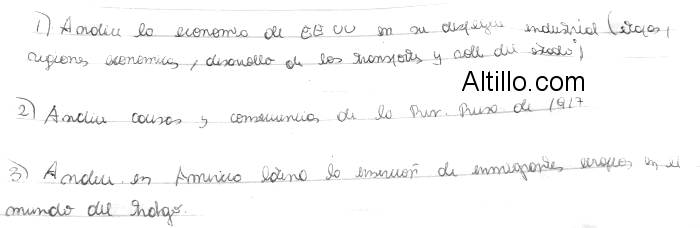 1) Analice la economia de EE UU en su despegue industrial (etapas,
regiones economicas, desarrollo de los transportes y rol del estado)
Altillo.com
2) Analice causas y consecuencias de la Rev. Rusa de 1917
3) Analice en America latina la insercion de inmigrantes europeos en el
mundo del trabajo.